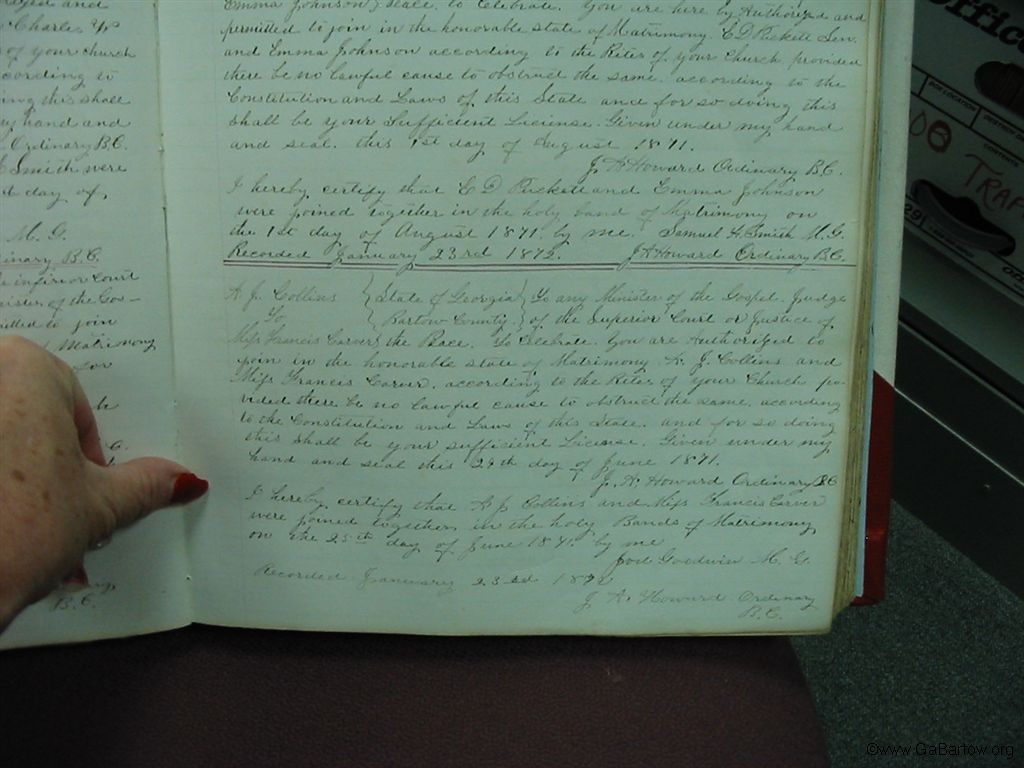 Charles
of your church
cording to
ing this shall
my hand and
Ordinary B.C.
Smith were
day of,
M. G.
inary B.C.
inferior Court
ister of the Gos-
itted to join
Matrimony
B.C.
Emma Johnson to Celebrate. You are here by Authorized and
permitted to join in the honorable state of Matrimony. E D Puckett Sen
and Emma Johnson according to the Rites of your Church provided
there be no lawful cause to obstruct the same. according to the
Constitution and Laws of this State and for so doing this
shall be your Sufficient License. Given under my hand
and seal. this 1st day of August 1871.
J A Howard Ordinary B.C.
I hereby certify that E D Puckett and Emma Johnson
were joined together in the holy band of Matrimony on
the 1st day of August 1871 by me. Samuel H. Smith M.G.
Recorded January 23rd 1872. J A Howard Ordinary B.C.
A. J. Collins State of Georgia To any Minister of the Gospel. Judge
To Bartow County. of the Superior Court or Justice of
Miss Francis Carver the Peace. To Celebrate. You are Authorized to
join in the honorable state of Matrimony A. J. Collins and
Miss Francis Carver. according to the Rites of your Church pro-
vided there be no lawful cause to obstruct the same. according
to the Constitution and Laws of this State. and for so doing
this shall be your sufficient License. Given under my
hand and seal this 24th day of June 1871.
J. A. Howard Ordinary B C
I hereby certify that A J Collins and Miss Francis Carver
were joined together in the holy Bands of Matrimony
on the 25th day of June 1871. by me
Goodwin M. G.
Recorded January 23rd 1872
J A. Howard Ordinary
B.C.
Offic
BOX LOCATION
CONTENTS
TRAF
©www.GaBartow.org